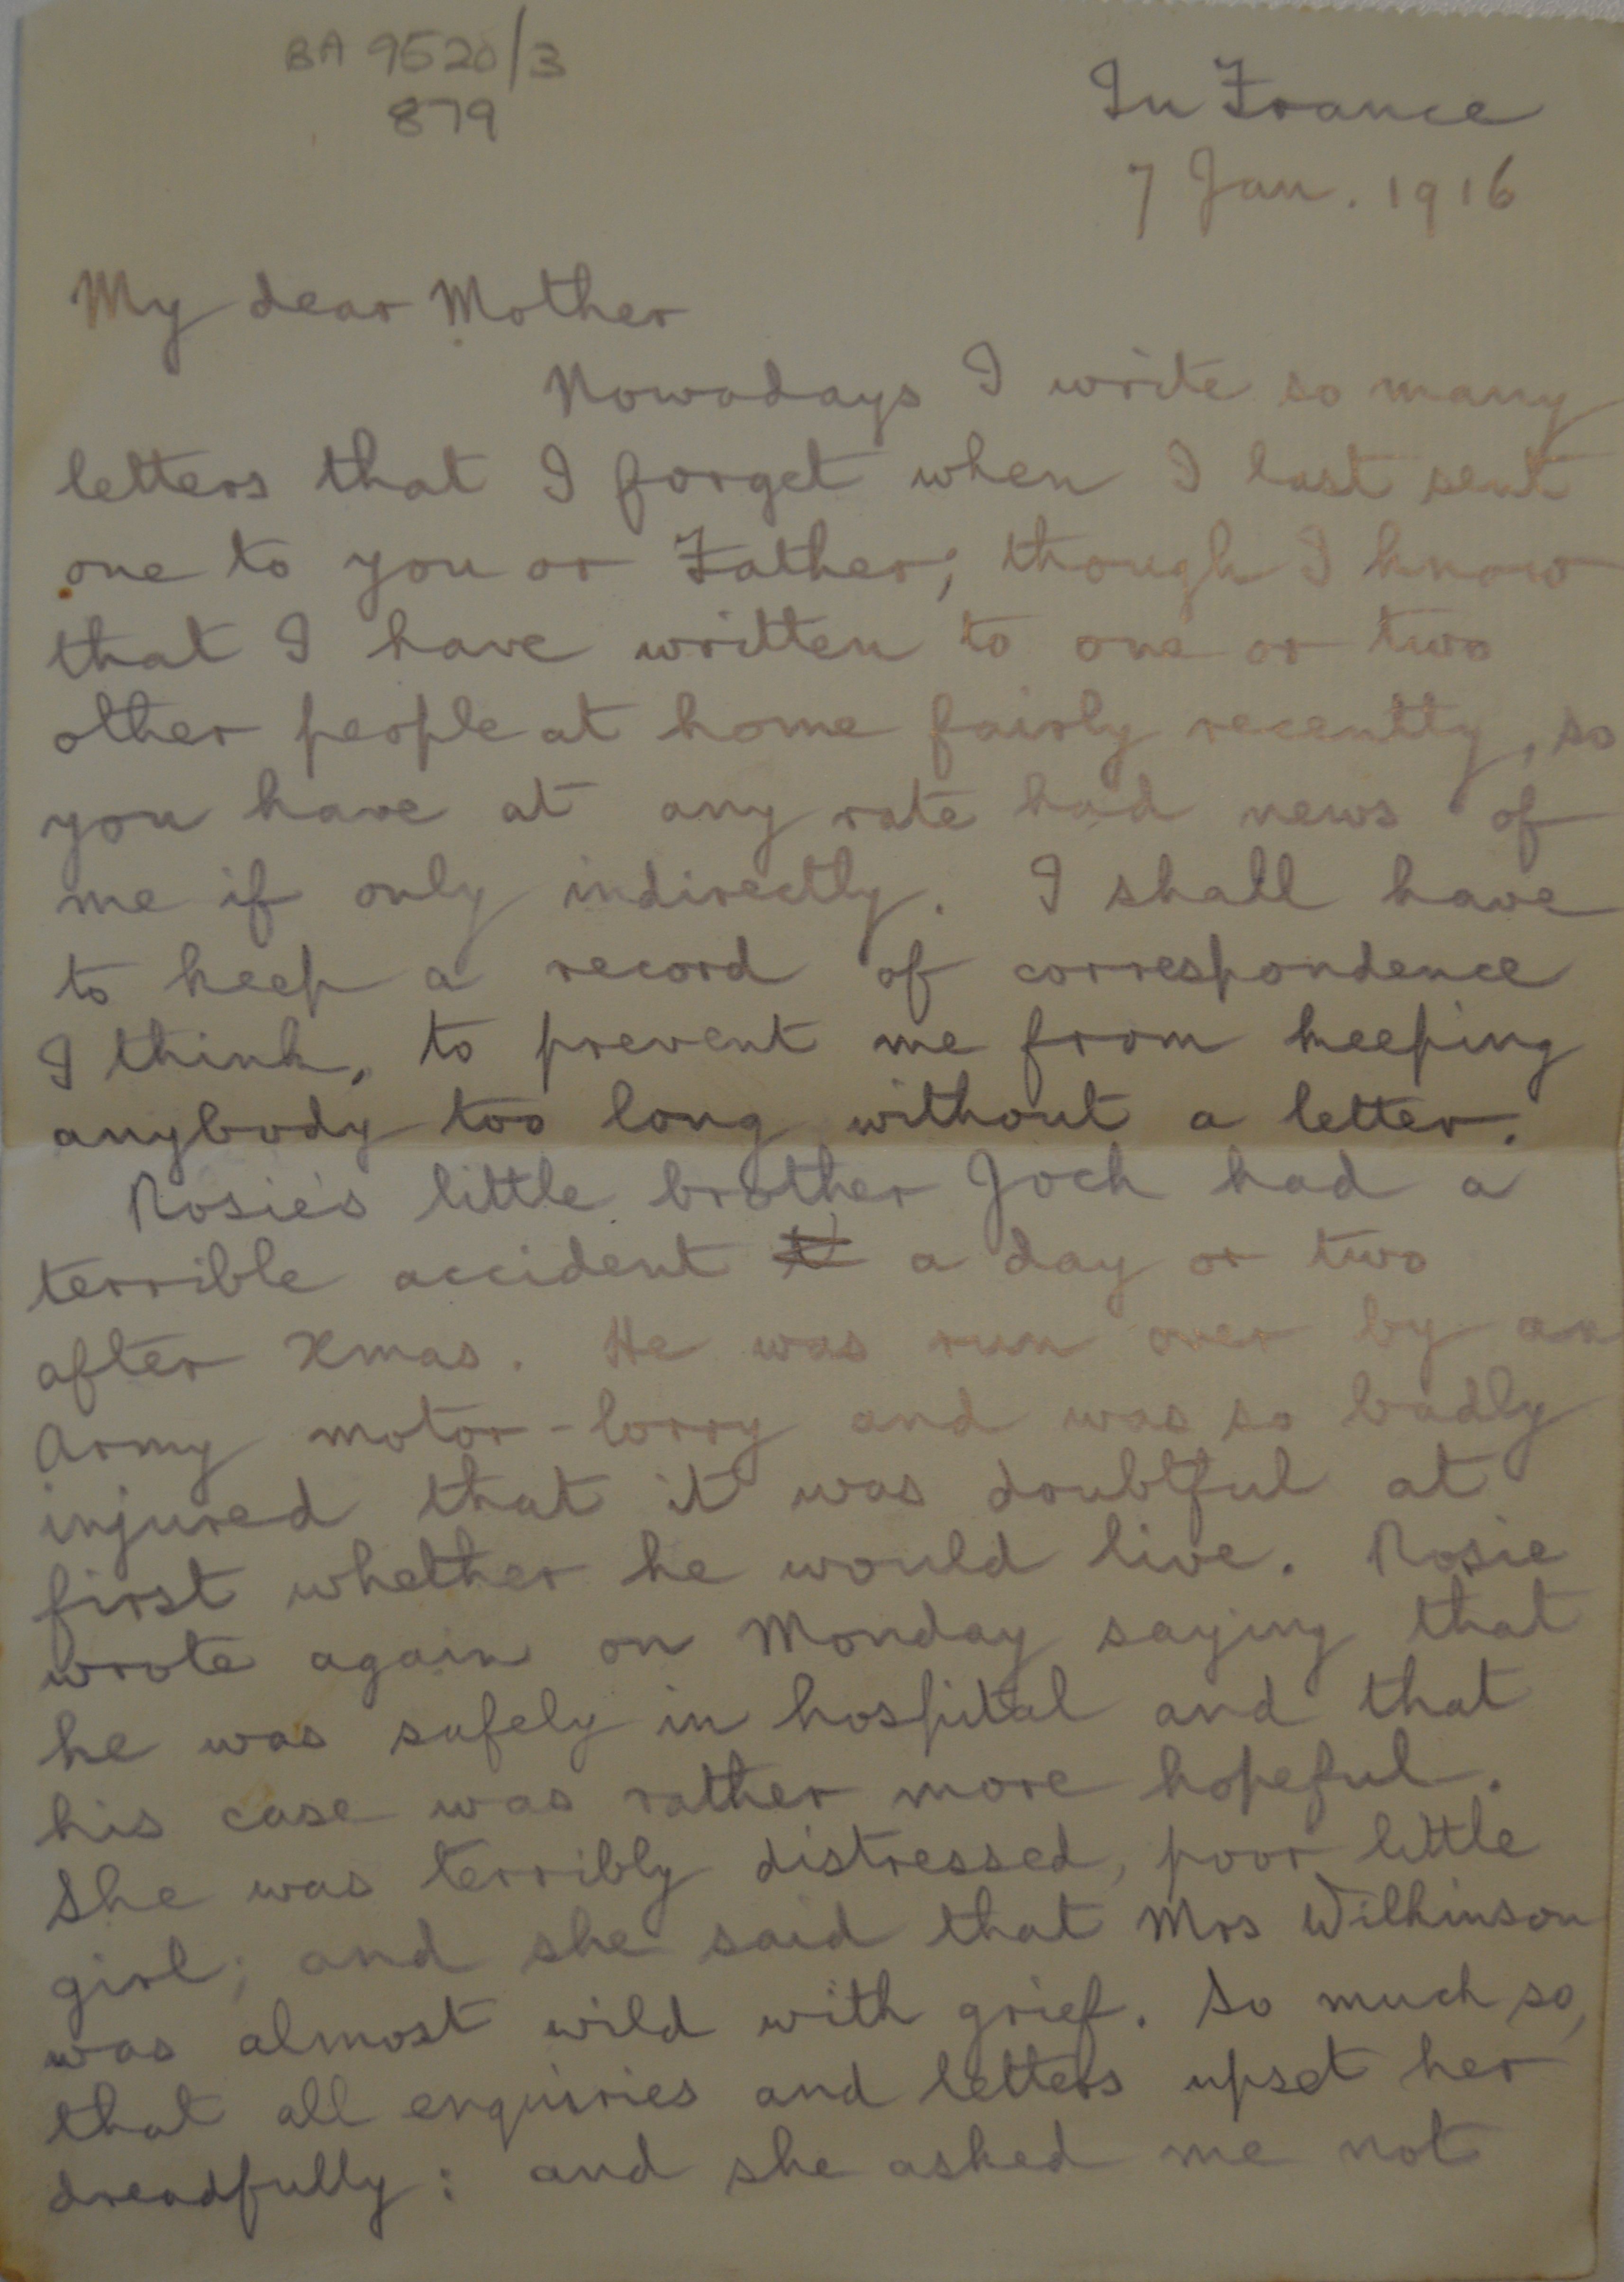 BA 9520/3
879
In France
7 Jan. 1916
My dear Mother
Nowadays I write so many
letters that I forget when I last sent
one to you or Father, though I know
that I have written to one or two
other people at home fairly recently, so
you have at any rate had news of
me if only indirectly. I shall have
to keep a record of correspondence
I think, to prevent me from keeping
anybody too long without a letter.
Rosie's little brother Jock had a
terrible accident a day or two
after Xmas. He was run over by an
Army motor-lorry and was so badly
injured that it was doubtful at
first whether he would live. Rosie
wrote again on Monday saying that
he was safely in hospital and that
his case was rather more hopeful.
She was terribly distressed, poor little
girl; and she said that Mrs Wilkinson
was almost wild with grief. So much so,
that all enquiries and letters upset her
dreadfully: and she asked me not